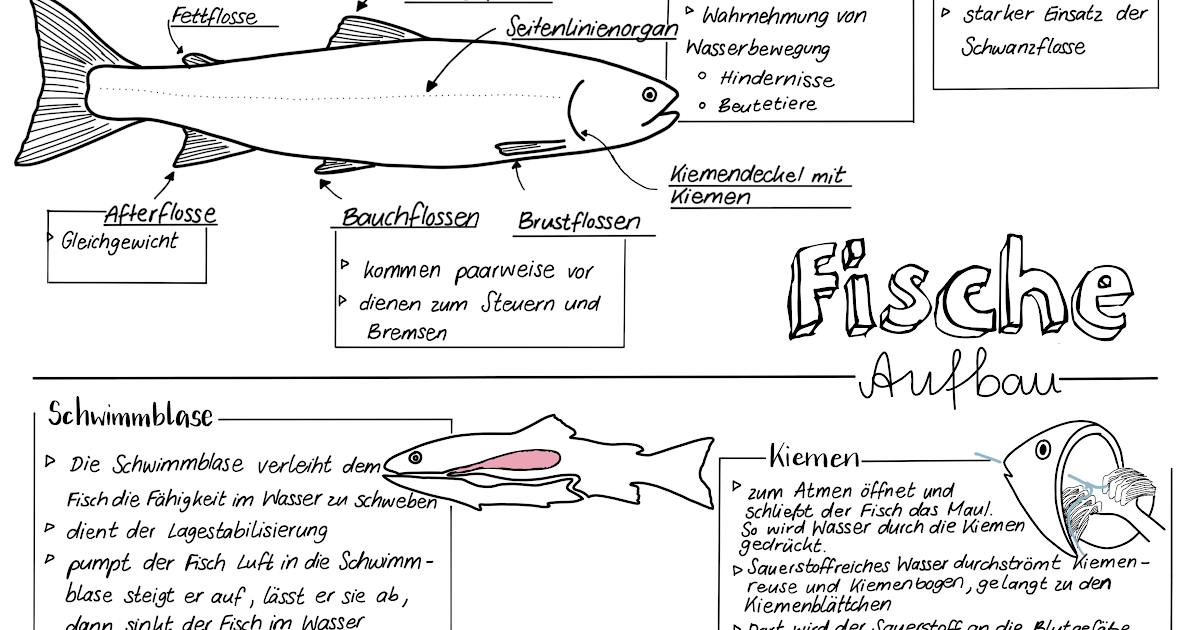 Fettflosse
Seitenlinienorgan
Wahrnehmung von
Wasserbewegung
Hindernisse
Beutetiere
starker Einsatz der
Schwanzflosse
Kiemendeckel mit
Kiemen
Afterflosse
Gleichgewicht
Bauchflossen
kommen paarweise vor
dienen zum Steuern und
Bremsen
Brustflossen
Fische
Aufbau
Schwimmblase
Die Schwimmblase verleiht dem
Fisch die Fähigkeit im Wasser zu schweben
dient der Lagestabilisierung
pumpt der Fisch Luft in die Schwimm-
blase steigt er auf, lässt er sie ab,
dann sinkt der Fisch im Wasser
Kiemen
zum Atmen öffnet und
schließt der Fisch das Maul.
So wird Wasser durch die Kiemen
gedrückt.
Sauerstoffreiches Wasser durchströmt Kiemen-
reuse und Kiemenbogen, gelangt zu den
Kiemenblättchen
Dort wird der Sauerstoff an die Blutgefäße